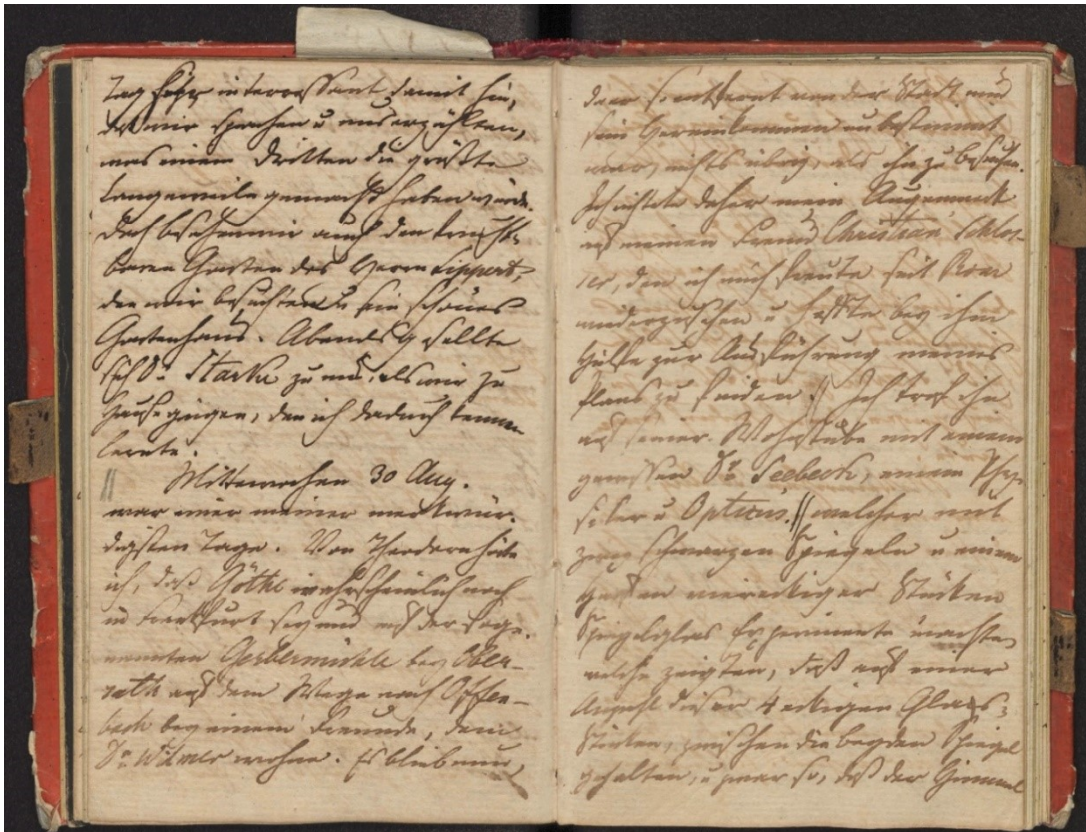 Tag sehr interessant damit hin,
daß wir sprachen u uns erzählten,
was einem Dritten die größte
Langeweile gemacht haben würde.
Doch besahen wir auch den frucht-
baren Garten des Herrn Lippert,
den wir besuchten u sein schönes
Gartenhaus. Abends gesellte
sich Dr Starke zu uns, als wir zu
Hause gingen, den ich dadurch kennen
lernte.
Mittewochen 30 Aug.
war einer meiner merkwür-
digsten Tage. Von Theodern hörte
ich, daß Göthe wahrscheinlich noch
in Frankfurt sey und auf der soge-
nannten Gerbermühle bey Ober-
rath auf dem Wege nach Offen-
bach bey einem Freunde, dem
Dr Wilmer wohne. Es blieb nun,
5
da er so entfernt von der Stadt und
sein Hereinkommen unbestimmt
war, nichts übrig, als ihn zu besuchen.
Ich richtete daher mein Augenmerk
auf meinen Freund Christian Schlos-
ser, den ich mich freute seit Rom
wiederzusehen u hoffte bey ihm
Hülfe zur Ausführung meines
Plans zu finden. // Ich traf ihn
auf seiner Wohnstube mit einem
gewissen Dr Seebeck, einem Phy-
siker u Opticus, // welcher mit
zwey schwarzen Spiegeln u einem
Haufen viereckiger Stücken
Spiegelglas Experimente machte,
welche zeigten, daß auf einer
Anzahl dieser 4 eckigen Glas-
Stücken, zwischen die beyden Spiegel
gehalten, u zwar so, daß der Himmel